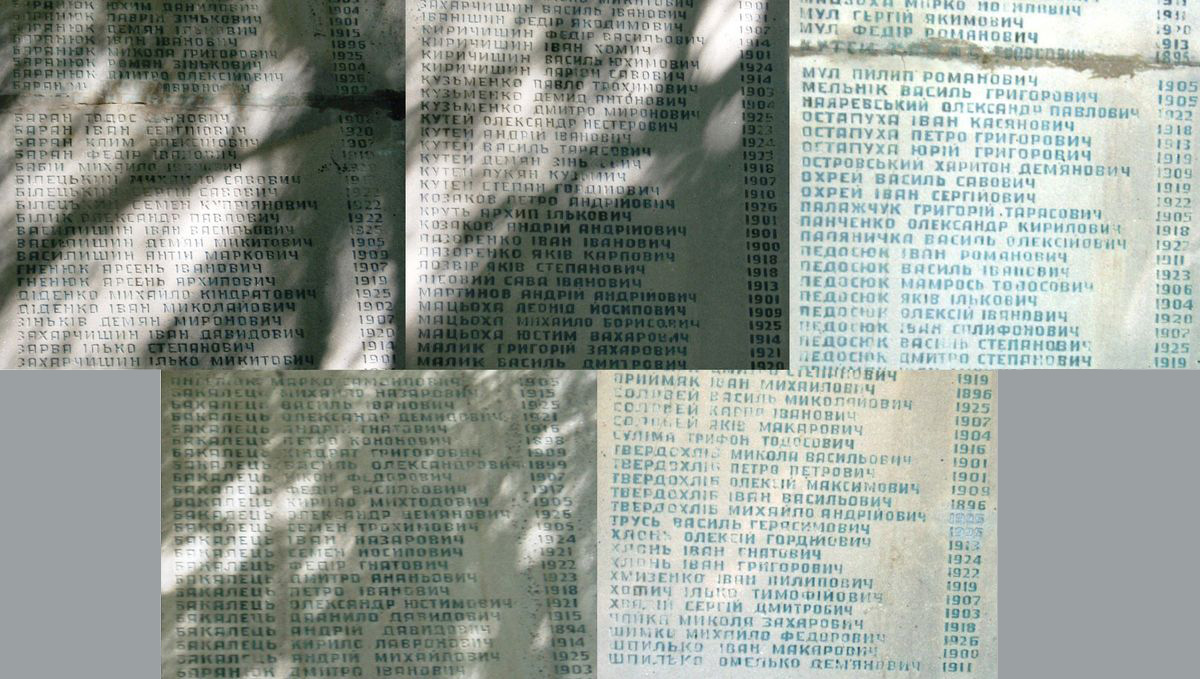 БАРАНЮК ЛАВРІН ЗІНЬКОВИЧ 1904
БАРАНЮК ДЕМЯН ІЛЬКОВИЧ 1915
БАРАНЮК ІВАН ІВАНОВИЧ 1896
БАРАНЮК МИКОЛА ГРИГОРОВИЧ 1925
БАРАНЮК РОМАН ЗІНЬКОВИЧ 1904
БАРАНЮК ДМИТРО ОЛЕКСІЙОВИЧ 1926
БАРАН ТОДОС
БАРАН ІВАН СЕРГІЙОВИЧ 1920
БАРАН КЛИМ ОЛЕКСОВИЧ 1907
БАРАН ФЕДІР ІВАНОВИЧ
БАБІЙ МИХАЙЛО ІВАНОВИЧ
БІЛЕЦЬКИЙ МИХАЙЛО САВОВИЧ
БІЛЕЦЬКИЙ СЕРГІЙ САВОВИЧ 1922
БІЛЕЦЬКИЙ СЕМЕН КУПРІЯНОВИЧ
БІЛИК ОЛЕКСАНДР ПАВЛОВИЧ 1922
ВАСИЛИШИН ІВАН ІВАНОВИЧ 1925
ВАСИЛИШИН ДЕМЯН МИКИТОВИЧ 1905
ВАСИЛИШИН АНТІН МАРКОВИЧ 1909
ГНЕНЮК АРСЕНЬ ІВАНОВИЧ 1907
ГНЕНЮК АРСЕНЬ АРХИПОВИЧ 1919
ДІДЕНКО МИХАЙЛО КІНДРАТОВИЧ 1925
ДІДЕНКО ІВАН МИКОЛАЙОВИЧ 1902
ЗІНЬКІВ ДЕМЯН МИРОНОВИЧ 1907
ЗАХАРЧИШИН ІВАН ДАВИДОВИЧ 1920
ЗАРВА ІЛЬКО СТЕПАНОВИЧ 1914
ЗАХАРЧИШИН ІЛЬКО МИКИТОВИЧ 1901
ЗАХАРЧИШИН ВАСИЛЬ ІВАНОВИЧ
ІВАНИШИН ФЕДІР ЯКОДИМОВИЧ
КИРИЧИШИН ФЕДІР ВАСИЛЬОВИЧ 1907
КИРИЧИШИН ІВАН ХОМИЧ 1914
КИРИЧИШИН ВАСИЛЬ ЮХИМОВИЧ 1901
КИРИЧИШИН ІЛАРІОН САВОВИЧ 1924
КУЗЬМЕНКО ПАВЛО ТРОХИМОВИЧ 1914
КУЗЬМЕНКО ДЕМИД АНТОНОВИЧ 1903
КУЗЬМЕНКО ДМИТРО МИРОНОВИЧ 1904
КУТЕЙ ОЛЕКСАНДР НЕСТЕРОВИЧ 1925
КУТЕЙ АНДРІЙ ІВАНОВИЧ 1923
КУТЕЙ ВАСИЛЬ ТАРАСОВИЧ 1924
КУТЕЙ ДЕМЯН 1923
КУТЕЙ ЛУКЯН КУЗЬМИЧ 1918
КУТЕЙ СТЕПАН ГОРДІЙОВИЧ 1907
КОЗАКОВ ПЕТРО АНДРІЙОВИЧ 1910
КРУТЬ АРХИП ІЛЬКОВИЧ 1926
КОЗАКОВ АНДРІЙ АНДРІЙОВИЧ 1901
ЛАЗОРЕНКО ІВАН ІВАНОВИЧ 1900
ЛАЗОРЕНКО ЯКІВ КАРПОВИЧ 1918
ЛОЗВІР ЯКІВ СТЕПАНОВИЧ 1918
ЛІСОВИЙ САВА ІВАНОВИЧ 1913
МАРТИНОВ АНДРІЙ АНДРІЙОВИЧ 1901
МАЦЬОХА ЛЕОНІД ЙОСИПОВИЧ 1909
МАЦЬОХА МИХАЙЛО БОРИСОВИЧ 1925
МАЦЬОХА ЮСТИМ ВАХАРОВИЧ 1914
МАЛИК ГРИГОРІЙ ЗАХАРОВИЧ 1921
МАЛИК ВАСИЛЬ ДМИТРОВИЧ 1920
МУЛ ГЕРГІЙ ЯКИМОВИЧ
МУЛ ФЕДІР РОМАНОВИЧ 1913
1895
МУЛ ПИЛИП РОМАНОВИЧ 1905
МЕЛЬНІК ВАСИЛЬ ГРИГОРОВИЧ 1905
НАЯРЕВСЬКИЙ ОЛЕКСАНДР ПАВЛОВИЧ 1922
ОСТАПУХА ІВАН КАСЯНОВИЧ 1918
ОСТАПУХА ПЕТРО ГРИГОРОВИЧ 1913
ОСТАПУХА ЮРІЙ ГРИГОРОВИЧ 1919
ОСТРОВСЬКИЙ ХАРИТОН ДЕМЯНОВИЧ 1909
ОХРЕЙ ВАСИЛЬ САВОВИЧ 1919
ОХРЕЙ ІВАН СЕРГІЙОВИЧ 1922
ПАЛАЖЧУК ГРИГОРІЙ ТАРАСОВИЧ 1905
ПАНЧЕНКО ОЛЕКСАНДР КИРИЛОВИЧ 1918
ПАЛЯНИЧКА ВАСИЛЬ ОЛЕКСІЙОВИЧ 1927
ПЕДОСЮК ІВАН РОМАНОВИЧ 1911
ПЕДОСЮК ВАСИЛЬ ІВАНОВИЧ 1923
ПЕДОСЮК МАМРОСЬ ТОДОСОВИЧ 1906
ПЕДОСЮК ЯКІВ ІЛЬКОВИЧ 1904
ПЕДОСЮК ОЛЕКСІЙ ІВАНОВИЧ 1920
ПЕДОСЮК ІВАН СИЛИФОНОВИЧ 1907
ПЕДОСЮК ВАСИЛЬ СТЕПАНОВИЧ 1925
ПЕДОСЮК ДМИТРО СТЕПАНОВИЧ 1919
МАРКО САМОЙЛОВИЧ 1905
БАКАЛЕЦЬ МИХАЙЛО НАЗАРОВИЧ 1915
БАКАЛЕЦЬ ВАСИЛЬ ІВАНОВИЧ 1925
БАКАЛЕЦЬ ОЛЕКСАНДР ДЕМИДОВИЧ 1921
БАКАЛЕЦЬ АНДРІЙ ГНАТОВИЧ 1916
БАКАЛЕЦЬ ПЕТРО КОНОНОВИЧ 1898
БАКАЛЕЦЬ КІНДРАТ ГРИГОРОВИЧ 1909
БАКАЛЕЦЬ ВАСИЛЬ ОЛЕКСАНДРОВИЧ 1899
БАКАЛЕЦЬ ФЕДОРОВИЧ 1907
БАКАЛЕЦЬ ФЕДІР ВАСИЛЬОВИЧ 1917
БАКАЛЕЦЬ КИРИЛО МИХТОДОВИЧ 1905
БАКАЛЕЦЬ ОЛЕКСАНДР ДЕМЯНОВИЧ 1926
БАКАЛЕЦЬ СЕМЕН ТРОХИМОВИЧ 1905
БАКАЛЕЦЬ ІВАН НАЗАРОВИЧ 1924
БАКАЛЕЦЬ СЕМЕН ЙОСИПОВИЧ 1921
БАКАЛЕЦЬ ФЕДІР ГНАТОВИЧ 1922
БАКАЛЕЦЬ ДМИТРО АНАНЬОВИЧ 1923
БАКАЛЕЦЬ ПЕТРО ІВАНОВИЧ 1918
БАКАЛЕЦЬ ОЛЕКСАНДР ЮСТИМОВИЧ 1921
БАКАЛЕЦЬ ДАНИЛО ДАВИДОВИЧ 1915
БАКАЛЕЦЬ АНДРІЙ ДАВИДОВИЧ 1894
БАКАЛЕЦЬ КИРИЛО ЛАВРОНОВИЧ 1914
БАКАЛЕЦЬ АНДРІЙ МИХАЙЛОВИЧ 1925
БАРАНЮК ДМИТРО ІВАНОВИЧ 1903
ДМИТРО СТЕПАНОВИЧ 1919
ПРИЙМЯК ІВАН МИХАЙЛОВИЧ 1896
СОЛОВЕЙ ВАСИЛЬ МИКОЛАЙОВИЧ 1925
СОЛОВЕЙ КАРПО ІВАНОВИЧ 1907
СОЛОВЕЙ ЯКІВ МАКАРОВИЧ 1904
СУЛІМА ТРИФОН ТОДОСОВИЧ 1916
ТВЕРДОХЛІБ МИКОЛА ВАСИЛЬОВИЧ 1901
ТВЕРДОХЛІБ ПЕТРО ПЕТРОВИЧ 1901
ТВЕРДОХЛІБ ОЛЕКСІЙ МАКСИМОВИЧ 1909
ТВЕРДОХЛІБ ІВАН ВАСИЛЬОВИЧ 1896
ТВЕРДОХЛІБ МИХАЙЛО АНДРІЙОВИЧ
ТРУСЬ ВАСИЛЬ ГЕРАСИМОВИЧ
ХЛОНЬ ОЛЕКСІЙ ГОРДІЙОВИЧ 1913
ХЛОНЬ ІВАН ГНАТОВИЧ 1924
ХЛОНЬ ІВАН ГРИГОРОВИЧ 1922
ХМИЗЕНКО ІВАН ПИЛИПОВИЧ 1919
ХОМИЧ ІЛЬКО ТИМОФІЙОВИЧ 1907
СЕРГІЙ ДМИТРОВИЧ 1903
ЧАЙКА МИКОЛА ЗАХАРОВИЧ 1918
ШИМКО МИХАЙЛО ФЕДОРОВИЧ 1926
ШПИЛЬКО ІВАН МАКАРОВИЧ 1900
ШПИЛЬКО ОМЕЛЬКО ДЕМ'ЯНОВИЧ 1911